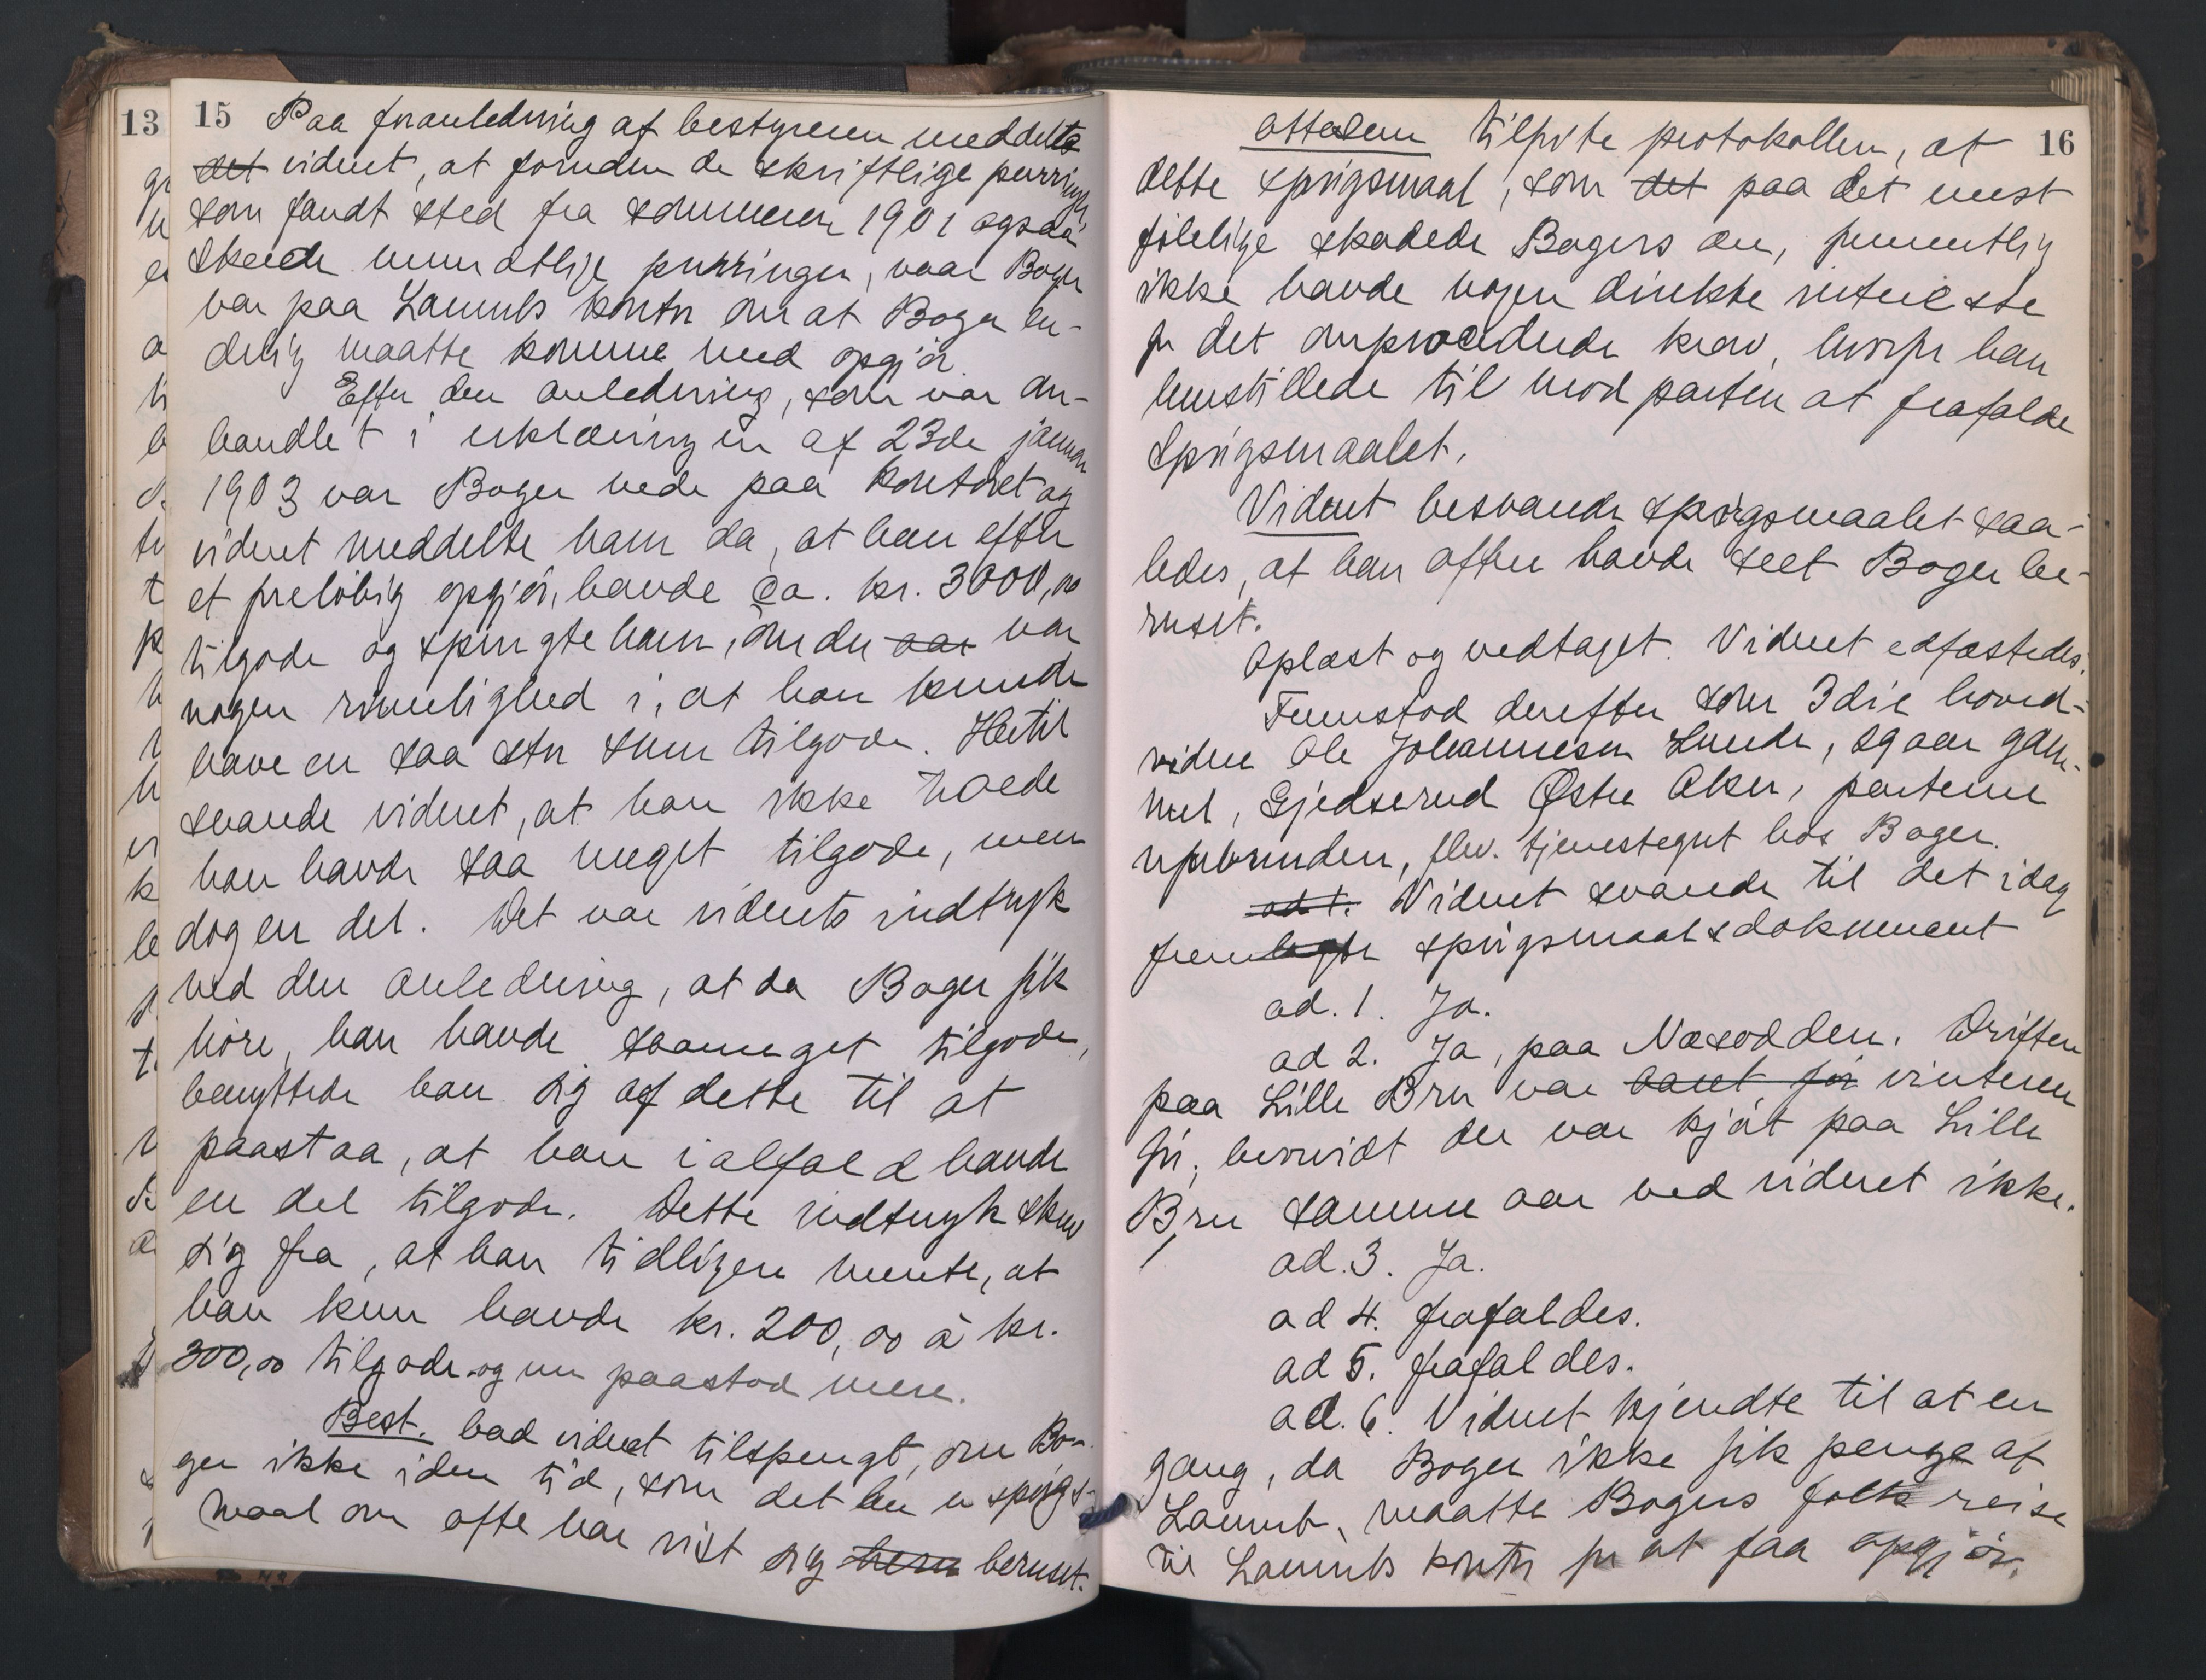 13
15 Paa foranledning af bestyreren meddelte
det vidnet, at foruden de skriftlige purringer
som fandt sted fra sommeren 1901 ogsaa
skeede mundtlige purringer, naar Boger
var paa Lamms kontor om at Boger en-
delig maatte komme med opgjør.
Efter den anledning, som var om-
handlet i erklæringen af 23de januar
1903 var Boger nede paa kontoret og
vidnet meddelte ham da, at han efter
et foreløbig opgjør, havde ca. kr. 3000,00
tilgode og spurgte ham, om der aar var
nogen rimelighed i, at han kunde
have en saa stor sum tilgode. Hertil
svarede vidnet, at han ikke troede
han havde saa meget tilgode, men
dog en del. Det var vidnets indtryk
ved den anledning, at da Boger fik
høre, han havde saameget tilgode,
benyttede han sig af dette til at
paastaa, at han ialfald havde
en del tilgode. Dette indtryk skrev
sig fra, at han tidligere mente, at
han kun havde kr. 200,00 à kr.
300,00 tilgode og nu paastod mere.
Best. bad vidnet tilspurgt, om Bo-
ger ikke i den tid, som det her er spørgs-
maal om ofte har vist sig beruset.
16
tilførte protokollen, at
dette spørgsmaal, som det paa det mest
følelige skadede Bogers ære, formentlig
ikke havde nogen direkte interesse
for det omprocederede krav, hvorfor han
henstillede til modparten at frafalde
spørgsmaalet.
Vidnet besvarede spørgsmaalet saa-
ledes, at han oftere havde seet Boger be-
ruset.
Oplæst og vedtaget. Vidnet edfæstedes.
Fremstod derefter som 3die hoved-
vidne Ole Johannesen Lunde, 29 aar gam-
mel, Gjedserud Østre Aker, parterne
uforbunden, flv. tjenestegut hos Boger.
ad 1. Vidnet svarede til det idag
fremlagte spørgsmaalsdokument
ad. 1. Ja.
ad 2. Ja, paa Næsodden. Driften
paa Lille Bru var været før vinteren
før; hvorvidt der var kjørt paa Lille
Bru samme aar ved vidnet ikke.
ad. 3. Ja.
ad 4. frafaldes.
ad 5. frafaldes.
ad. 6. Vidnet kjendte til at en
gang, da Boger ikke fik penge af
Lamm, maatte Bogers folk reise
til Lamms kontor for at faa opgjør.